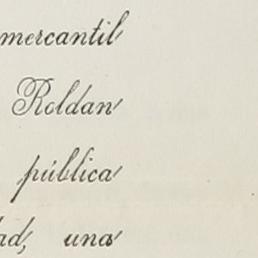 mercantil
Roldan
pública
ad, una